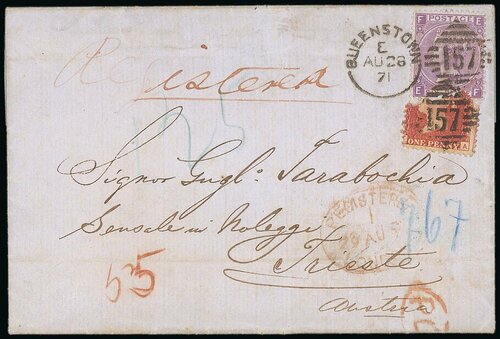 QUEENSTOWN
E
AU 28
71
F POSTAGE E
157
157
ONE PENNY A
Registered
125
Signor Gugl:o Tarabochia
Sensale in Noleggi
Trieste
Austria
REGISTERED
29 AU
767
55